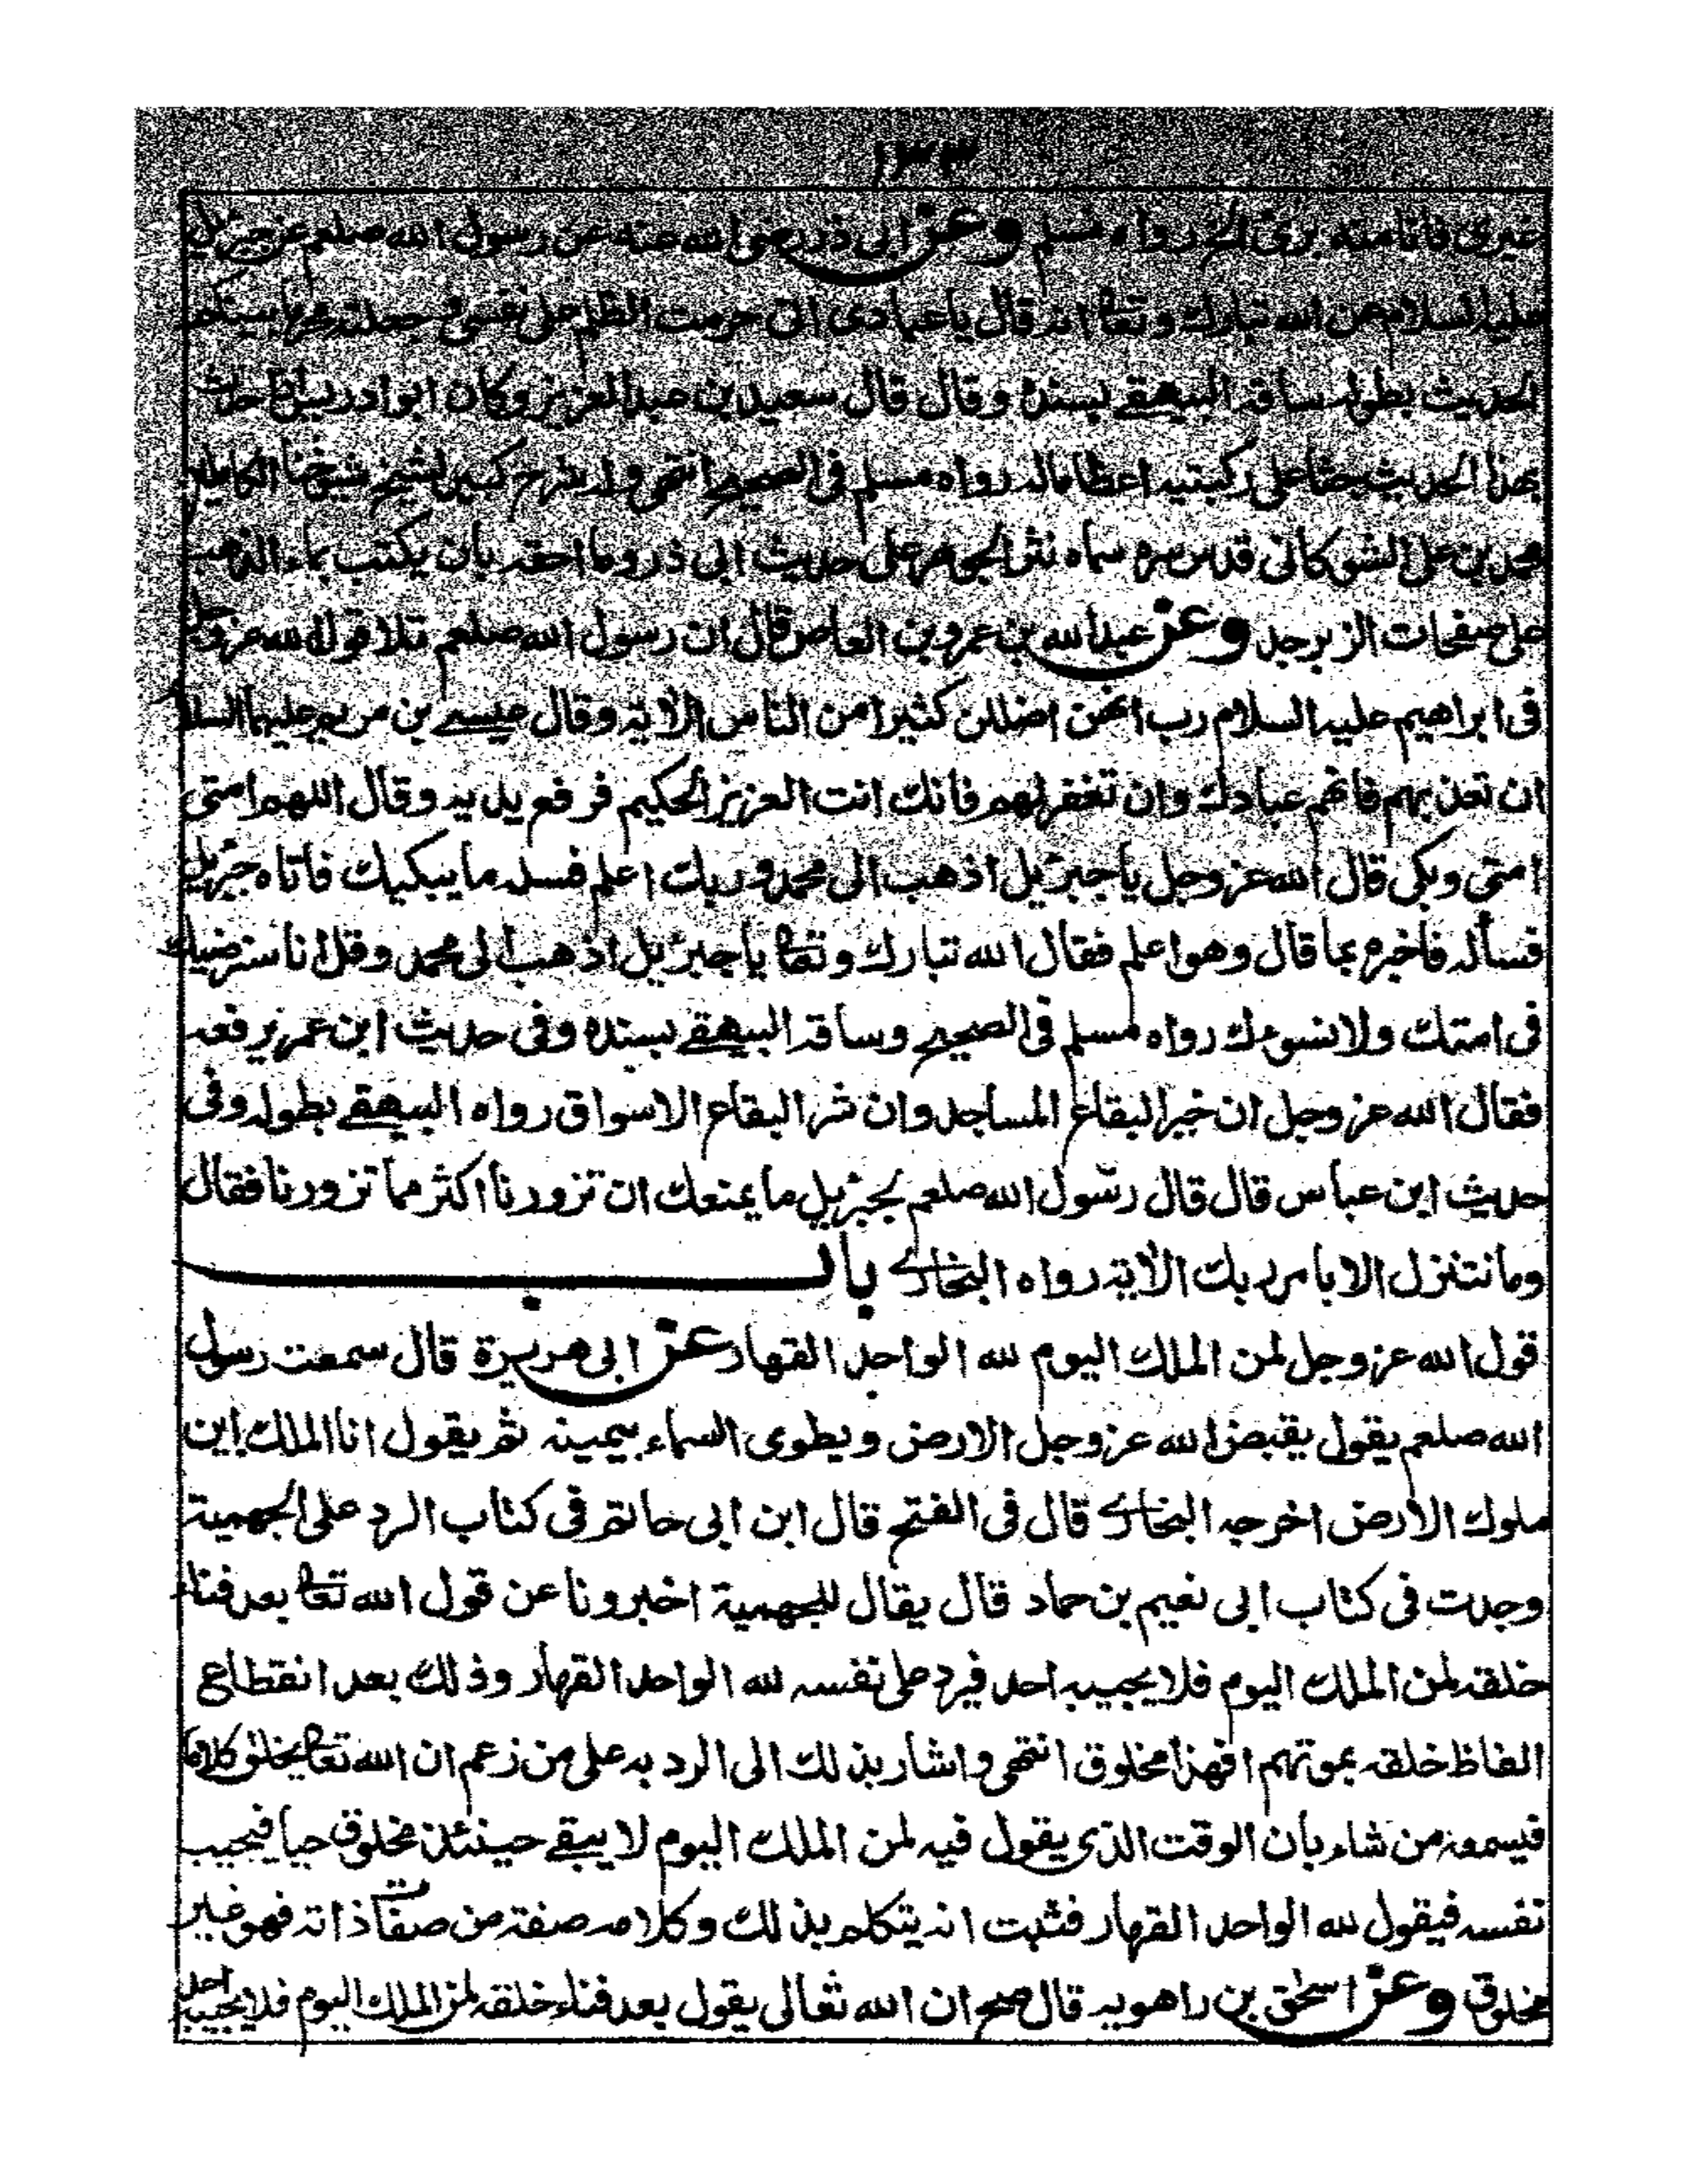 ١٣٣
غيرى فانا منه برئ الخ رواه مسلم وعن ابى ذر رضى الله عنه عن رسول الله صلعم عن جبرئيل
عليه السلام عن الله تبارك وتعا انه قال يا عبادى انى حرمت الظلم على نفسى وجعلته محرما بينكم
الحديث بطوله ساقه البيهقے بسنده وقال قال سعيد بن عبد العزيز وكان ابو ادريس اذا حدث
بهذا الحديث جثا على ركبتيه اعظاما له رواه مسلم فى الصحيح انتهى وله شرح كبير لشيخ شيخنا الكامل
محمد بن على الشوكانى قدس سره سماه نثر الجوهر على حديث ابى ذر وما احقه بان يكتب بماء الذهب
على صفحات الزبرجد وعن عبد الله بن عمرو بن العاص قال ان رسول الله صلعم تلا قول الله عز وجل
فى ابراهيم عليه السلام رب انهن اضللن كثيرا من الناس الاية وقال عيسے بن مريم عليهما السلام
ان تعذبهم فانهم عبادك وان تغفر لهم فانك انت العزيز الحكيم فرفع يديه وقال اللهم امتى
امتى وبكى قال الله عز وجل يا جبرئيل اذهب الى محمد وربك اعلم فسله ما يبكيك فاتاه جبرئيل
فسأله فاخبره بما قال وهو اعلم فقال الله تبارك وتعا يا جبرئيل اذهب الى محمد وقل انا سنرضيك
فى امتك ولا نسوءك رواه مسلم فى الصحيح وساقه البيهقے بسنده وفى حديث ابن عمر يرفعه
فقال الله عز وجل ان خير البقاع المساجد وان شر البقاع الاسواق رواه البيهقے بطوله وفى
حديث ابن عباس قال قال رسول الله صلعم لجبرئيل ما يمنعك ان تزورنا اكثر مما تزورنا فقال
وما نتنزل الا بامر ربك الاية رواه البخارے باب
قول الله عز وجل لمن الملك اليوم لله الواحد القهار عن ابى هريرة قال سمعت رسول
الله صلعم يقول يقبض الله عز وجل الارض ويطوى السماء بيمينه ثم يقول انا الملك اين
ملوك الارض اخرجه البخارے قال فى الفتح قال ابن ابى حاتم فى كتاب الرد على الجهمية
وجدت فى كتاب ابى نعيم بن حماد قال يقال للجهمية اخبرونا عن قول الله تعا بعد فناء
خلقه لمن الملك اليوم فلا يجيبه احد فيرد على نفسه لله الواحد القهار وذلك بعد انقطاع
الفاظ خلقه بموتهم افهذا مخلوق انتهى واشار بذلك الى الرد به على من زعم ان الله تعا يخلق كلاما
فيسمعه من شاء بان الوقت الذى يقول فيه لمن الملك اليوم لا يبقے حينئذ مخلوق حيا فيجيب
نفسه فيقول لله الواحد القهار فثبت انه يتكلم بذلك وكلامه صفة من صفات ذاته فهو غير
مخلوق وعن اسحق بن راهويه قال صح ان الله تعالى يقول بعد فناء خلقه لمن الملك اليوم فلا يجيبه احد